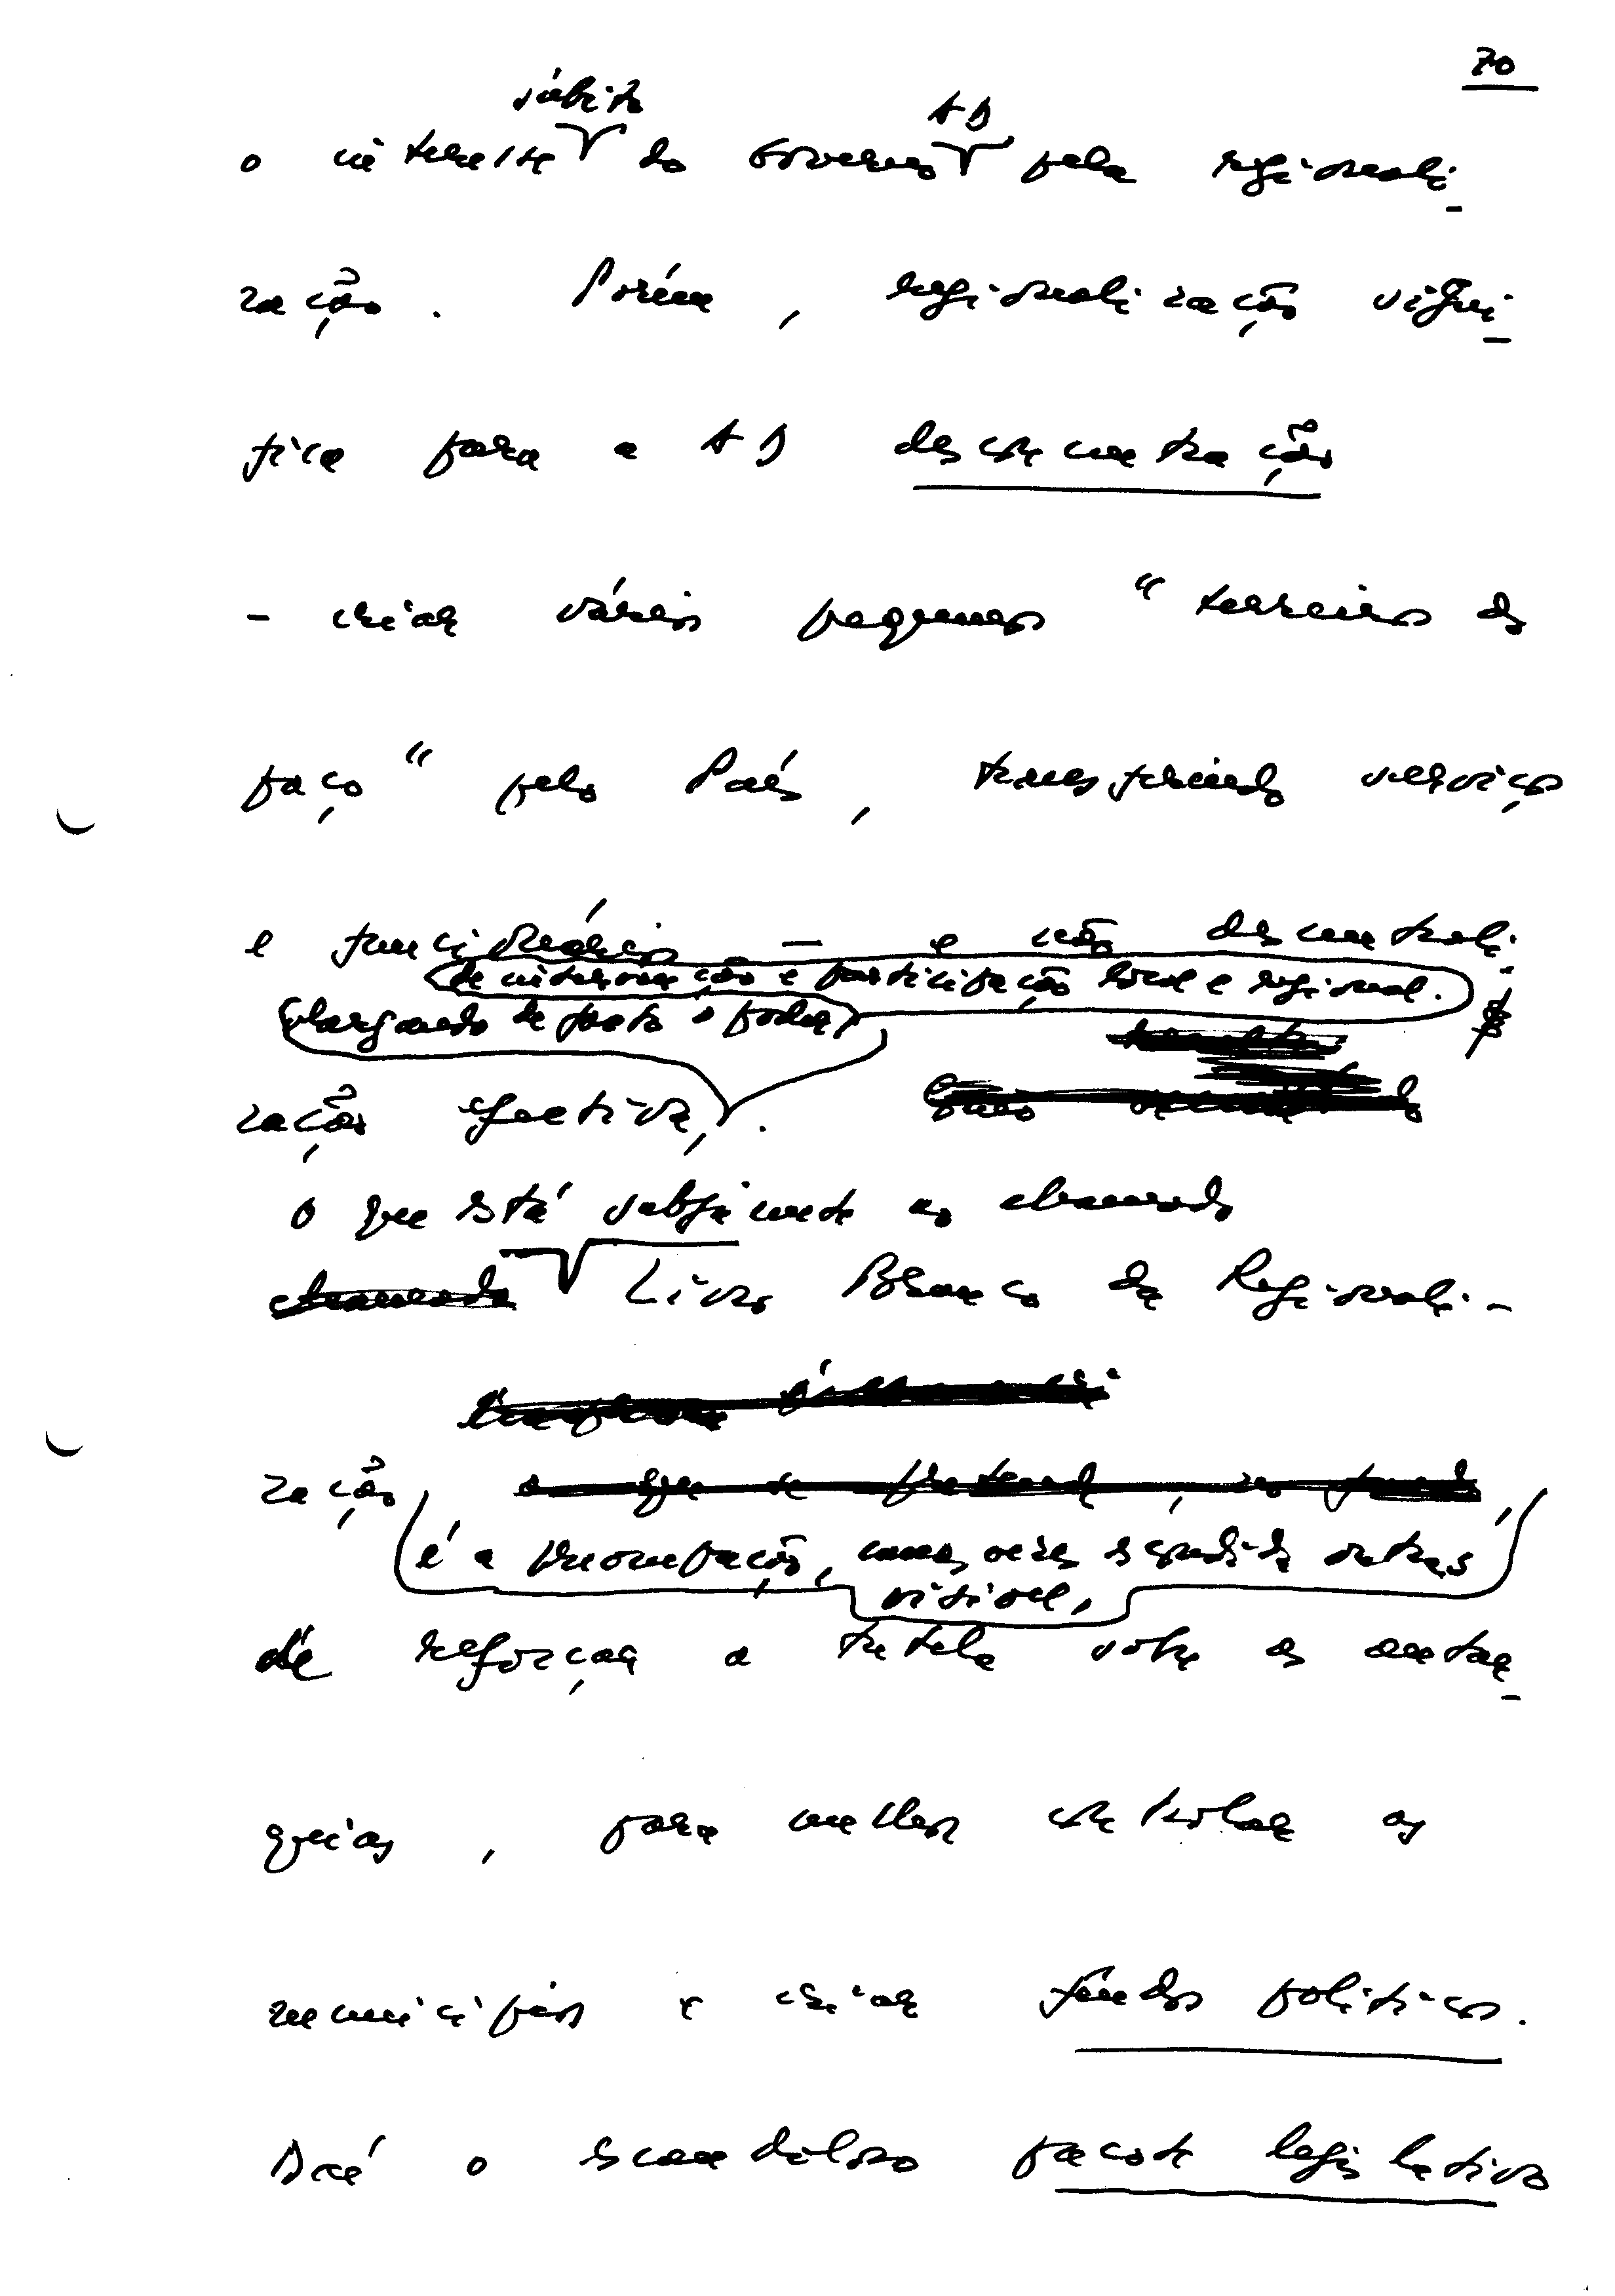 70
súbito AD
o interesse do Governo pela regionali-
zação. Porém, regionalização signi-
fica para a AD desconcentração
- criar vários pequenos "terreiros do
paço" pelo País, transferindo serviços
e funcionários — e não descentrali-
de intervenção e participação local e regional.
(alargando de facto o poder)
zação efectiva, .
O que está subjacente ao chamado
chamado Livro Branco da Regionali-
zação, o que se pretende, no fundo,
é a preocupação, umas vezes escondida outras
visível,
de reforçar a tutela sobre as autar-
quias, para melhor controlar os
municípios e criar feudos políticos.
Daí o escandaloso pacote legislativo